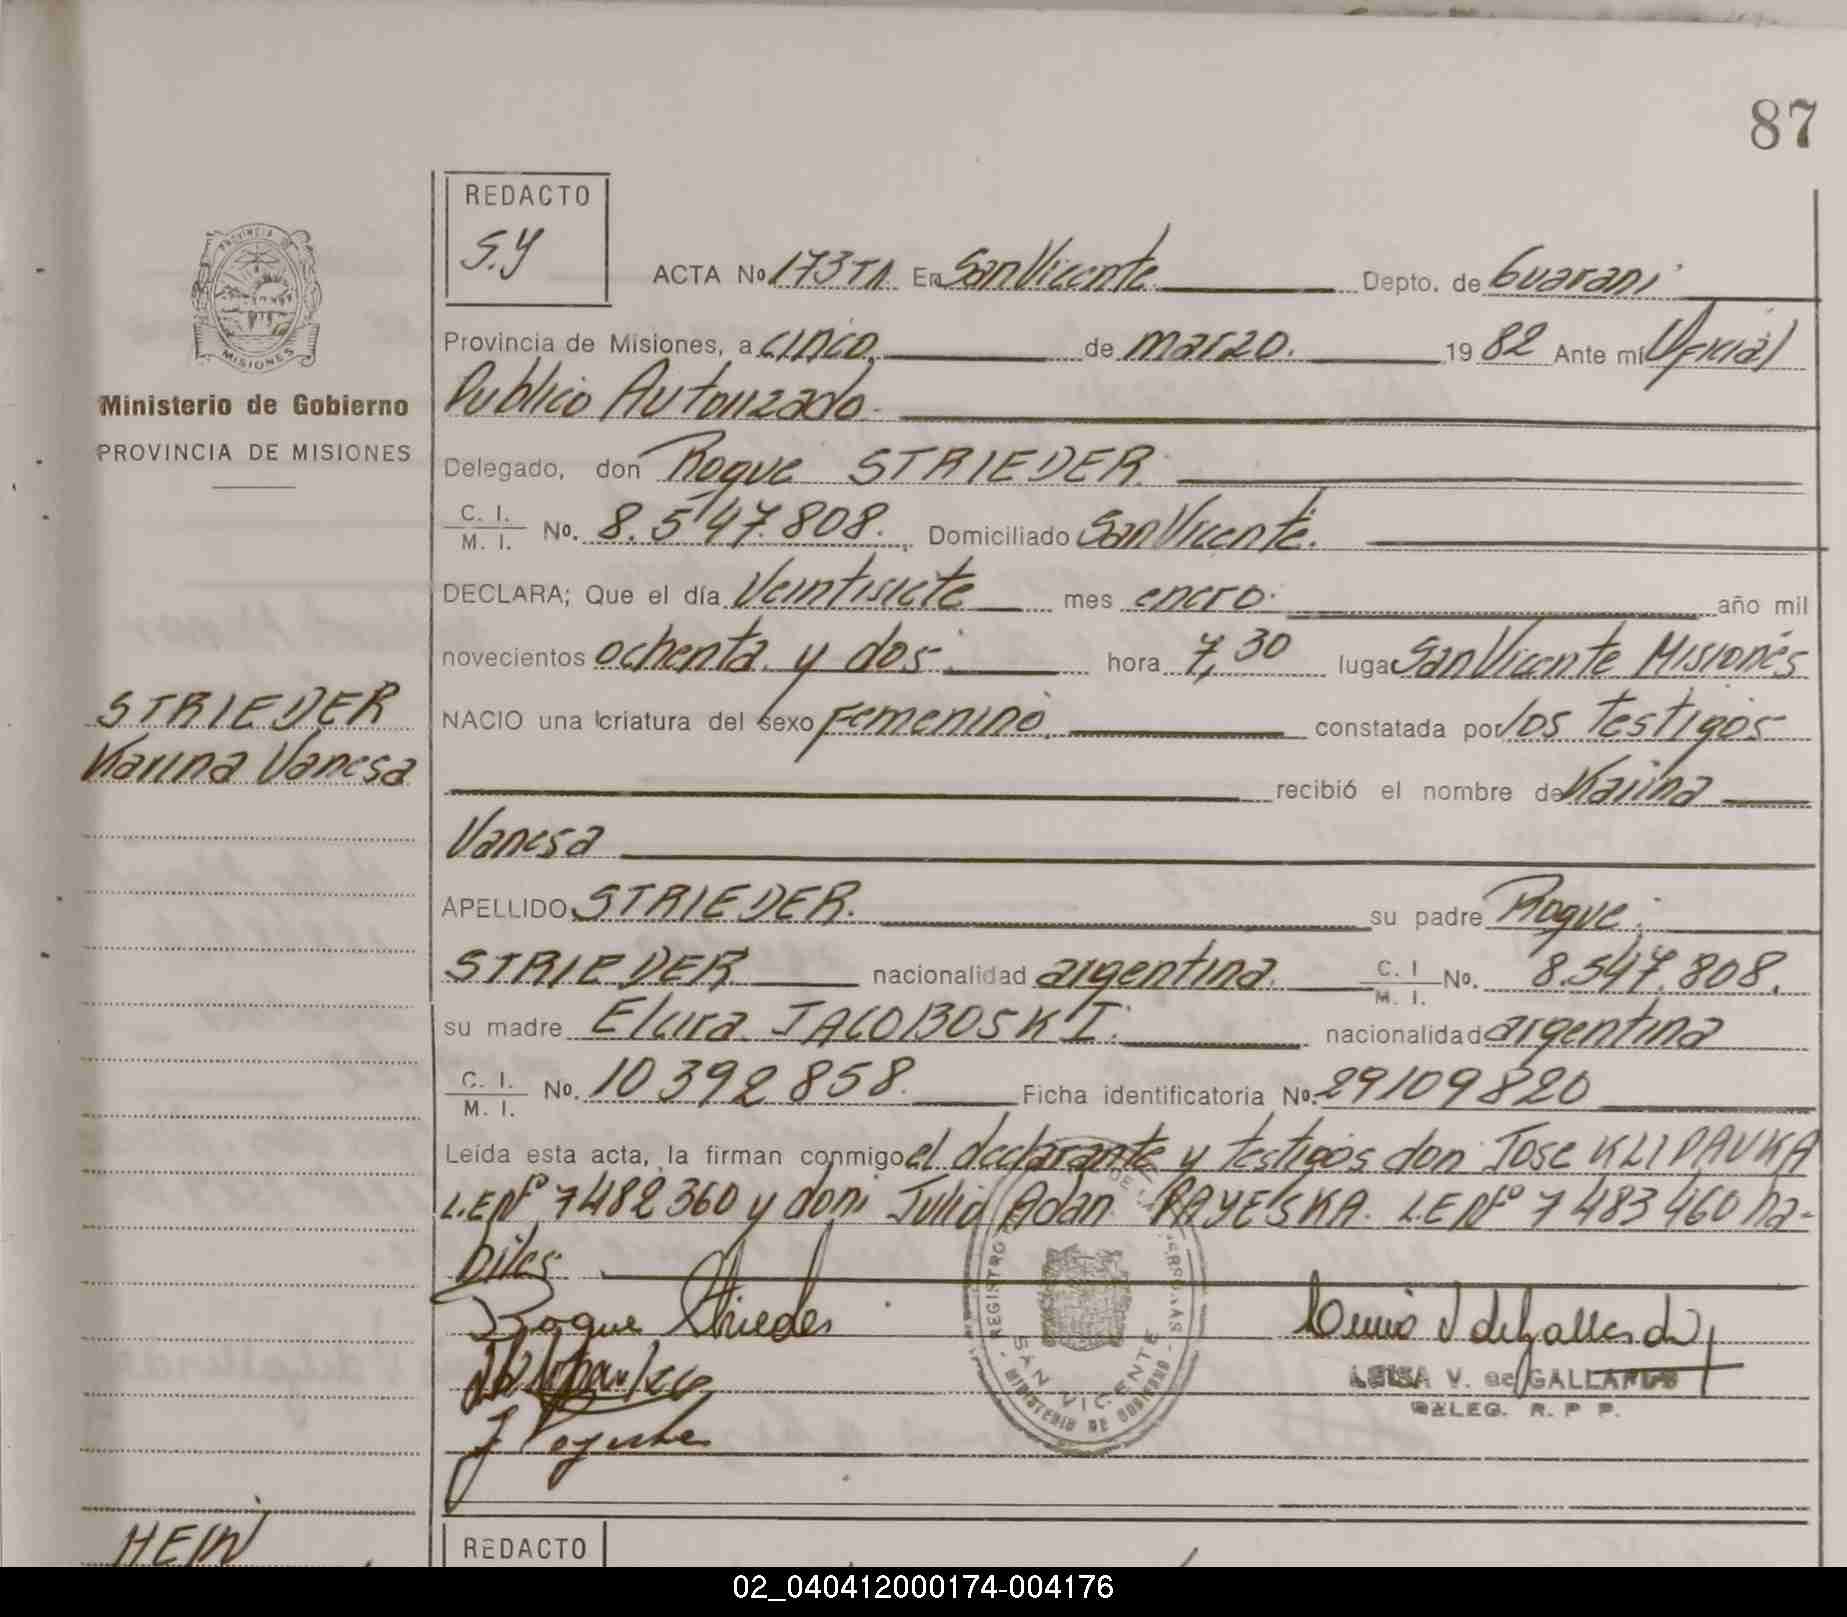 87
REDACTO
S.Y
ACTA No 173 TA En San Vicente Depto. de Guarani
Provincia de Misiones, a cinco de marzo. 19 82 Ante mí Oficial
Publico Autorizado.
Delegado, don Roque STRIEDER.
C. I.
M. I. No. 8.547.808. Domiciliado San Vicente.
DECLARA; Que el día Veintisiete mes enero. año mil
novecientos ochenta y dos. hora 7,30 luga San Vicente Misiones
NACIO una criatura del sexo Femenino. constatada por los testigos
recibió el nombre de Karina
Vanesa
APELLIDO STRIEDER. su padre Roque.
STRIEDER nacionalidad argentina. C. I
M. I. No. 8.547.808.
su madre Elvira JACOBOSKI. nacionalidad argentina
C. I.
M. I. No. 10 392 858. Ficha identificatoria No. 29109820
Leída esta acta, la firman conmigo el declarante y testigos don Jose KLIPAUKA
L.E Nº 7482360 y don Julio Adan PAYESKA. LE Nº 7 483 460 ha-
biles
Roque Strieder
LUISA V. de GALLARDO
DELEG. R. P P.
REGISTRO DE LAS PERSONAS
SAN VICENTE
MINISTERIO DE GOBIERNO
PROVINCIA DE
MISIONES
Ministerio de Gobierno
PROVINCIA DE MISIONES
STRIEDER
Karina Vanesa
HEIN
REDACTO
02_040412000174-004176